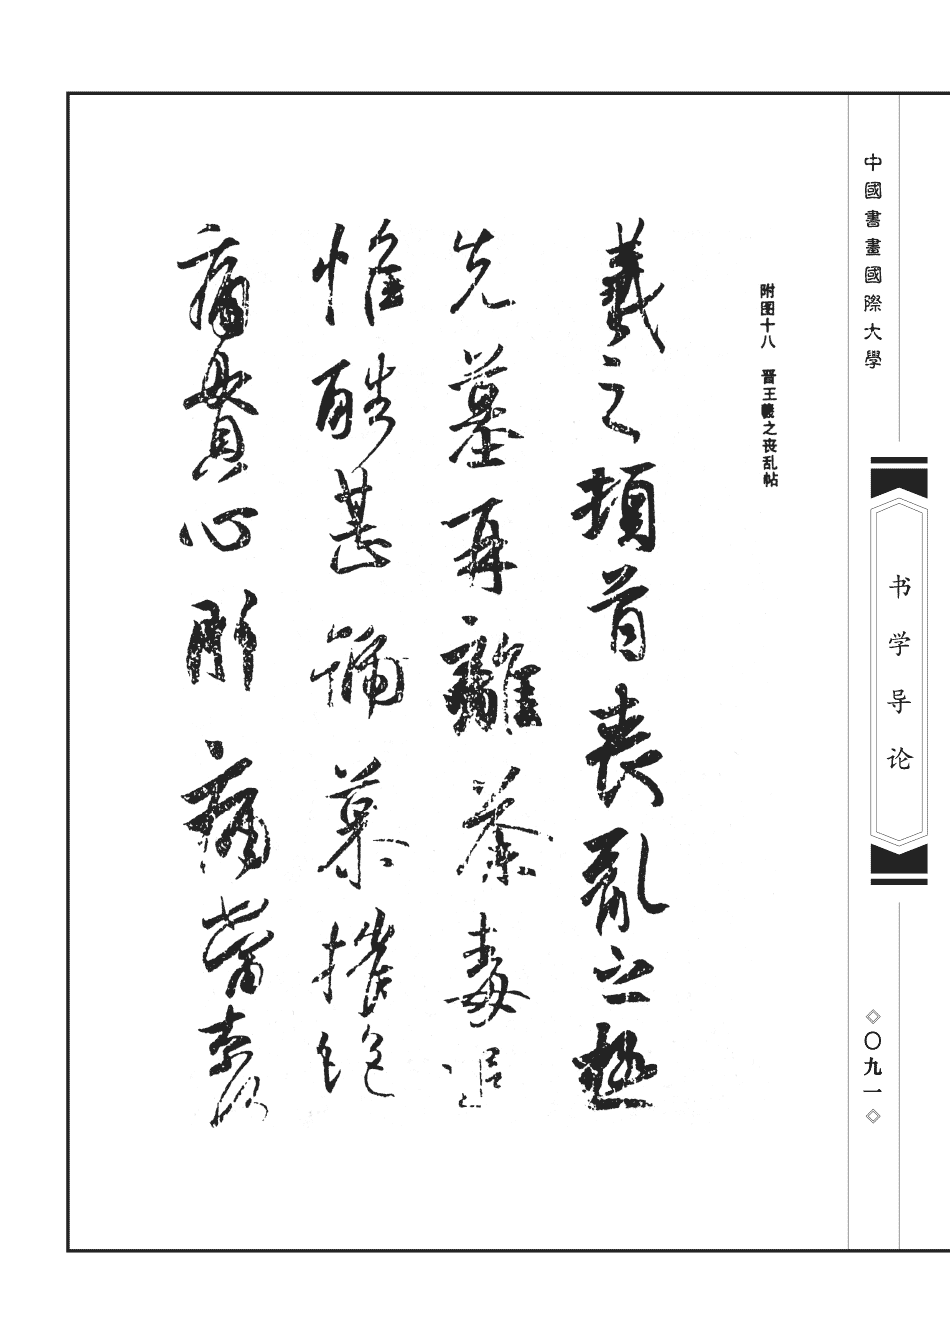 中國書畫國際大學
书学导论
◇〇九一◇
附图十八 晋王羲之丧乱帖
羲之頓首喪亂之極
先墓再離荼毒追
惟酷甚號慕摧絕
痛貫心肝痛當奈何